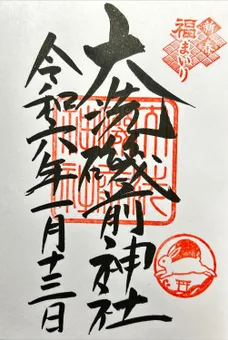 新春
福まいり
大洗磯前神社
令和六年一月十三日